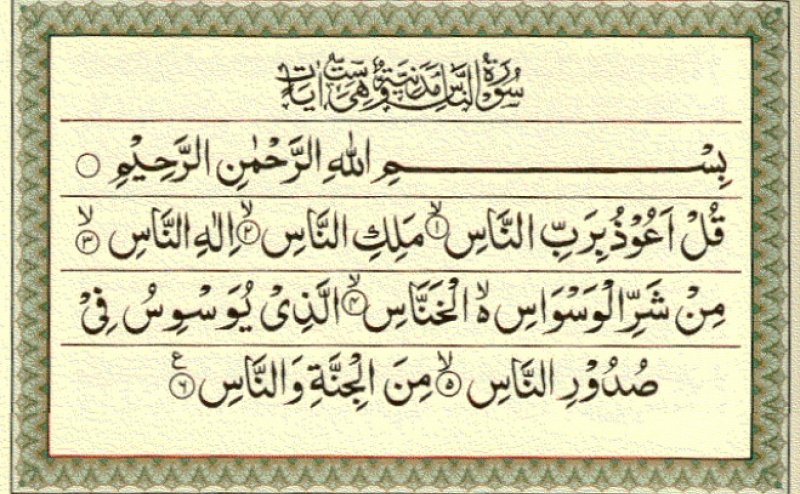 سُورَةُ النَّاسِ مَدَنِيَّةٌ وَّهِيَ سِتُّ اٰيَاتٍ
بِسْـــــــــــــمِ اللهِ الرَّحْمٰنِ الرَّحِيْمِ ۝
قُلْ اَعُوْذُ بِرَبِّ النَّاسِ ۙ﴿١﴾ مَلِكِ النَّاسِ ۙ﴿٢﴾ اِلٰهِ النَّاسِ ۙ﴿٣﴾
مِنْ شَرِّ الْوَسْوَاسِ ۙ۬ الْخَنَّاسِ ۙ﴿٤﴾ الَّذِيْ يُوَسْوِسُ فِيْ
صُدُوْرِ النَّاسِ ۙ﴿٥﴾ مِنَ الْجِنَّةِ وَالنَّاسِ ﴿٦﴾ ع